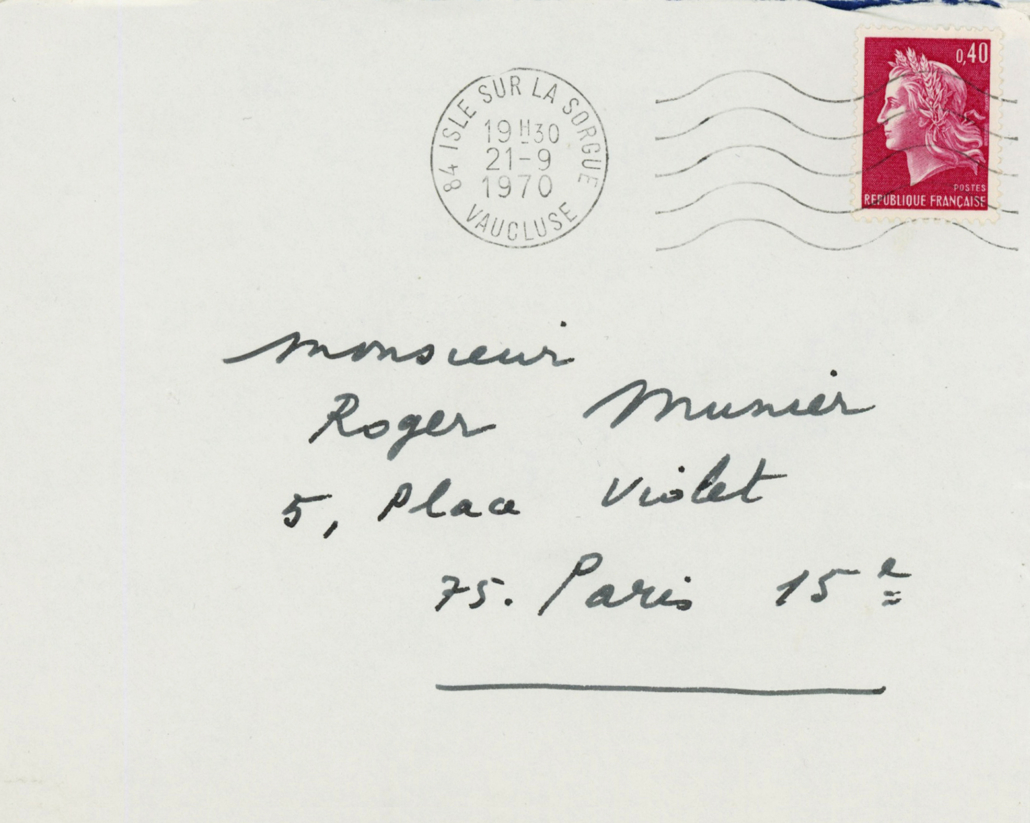 84 ISLE SUR LA SORGUE
19H30
21-9
1970
VAUCLUSE
0,40
POSTES
REPUBLIQUE FRANÇAISE
Monsieur
Roger Munier
5, Place Violet
75. Paris 15e